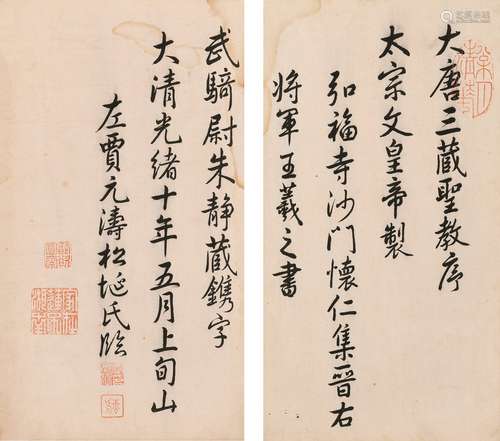 大唐三藏聖教序
太宗文皇帝製
弘福寺沙門懷仁集晉右
將軍王羲之書
武騎尉朱靜藏鐫字
大清光緒十年五月上旬山
左賈元濤松埏氏臨